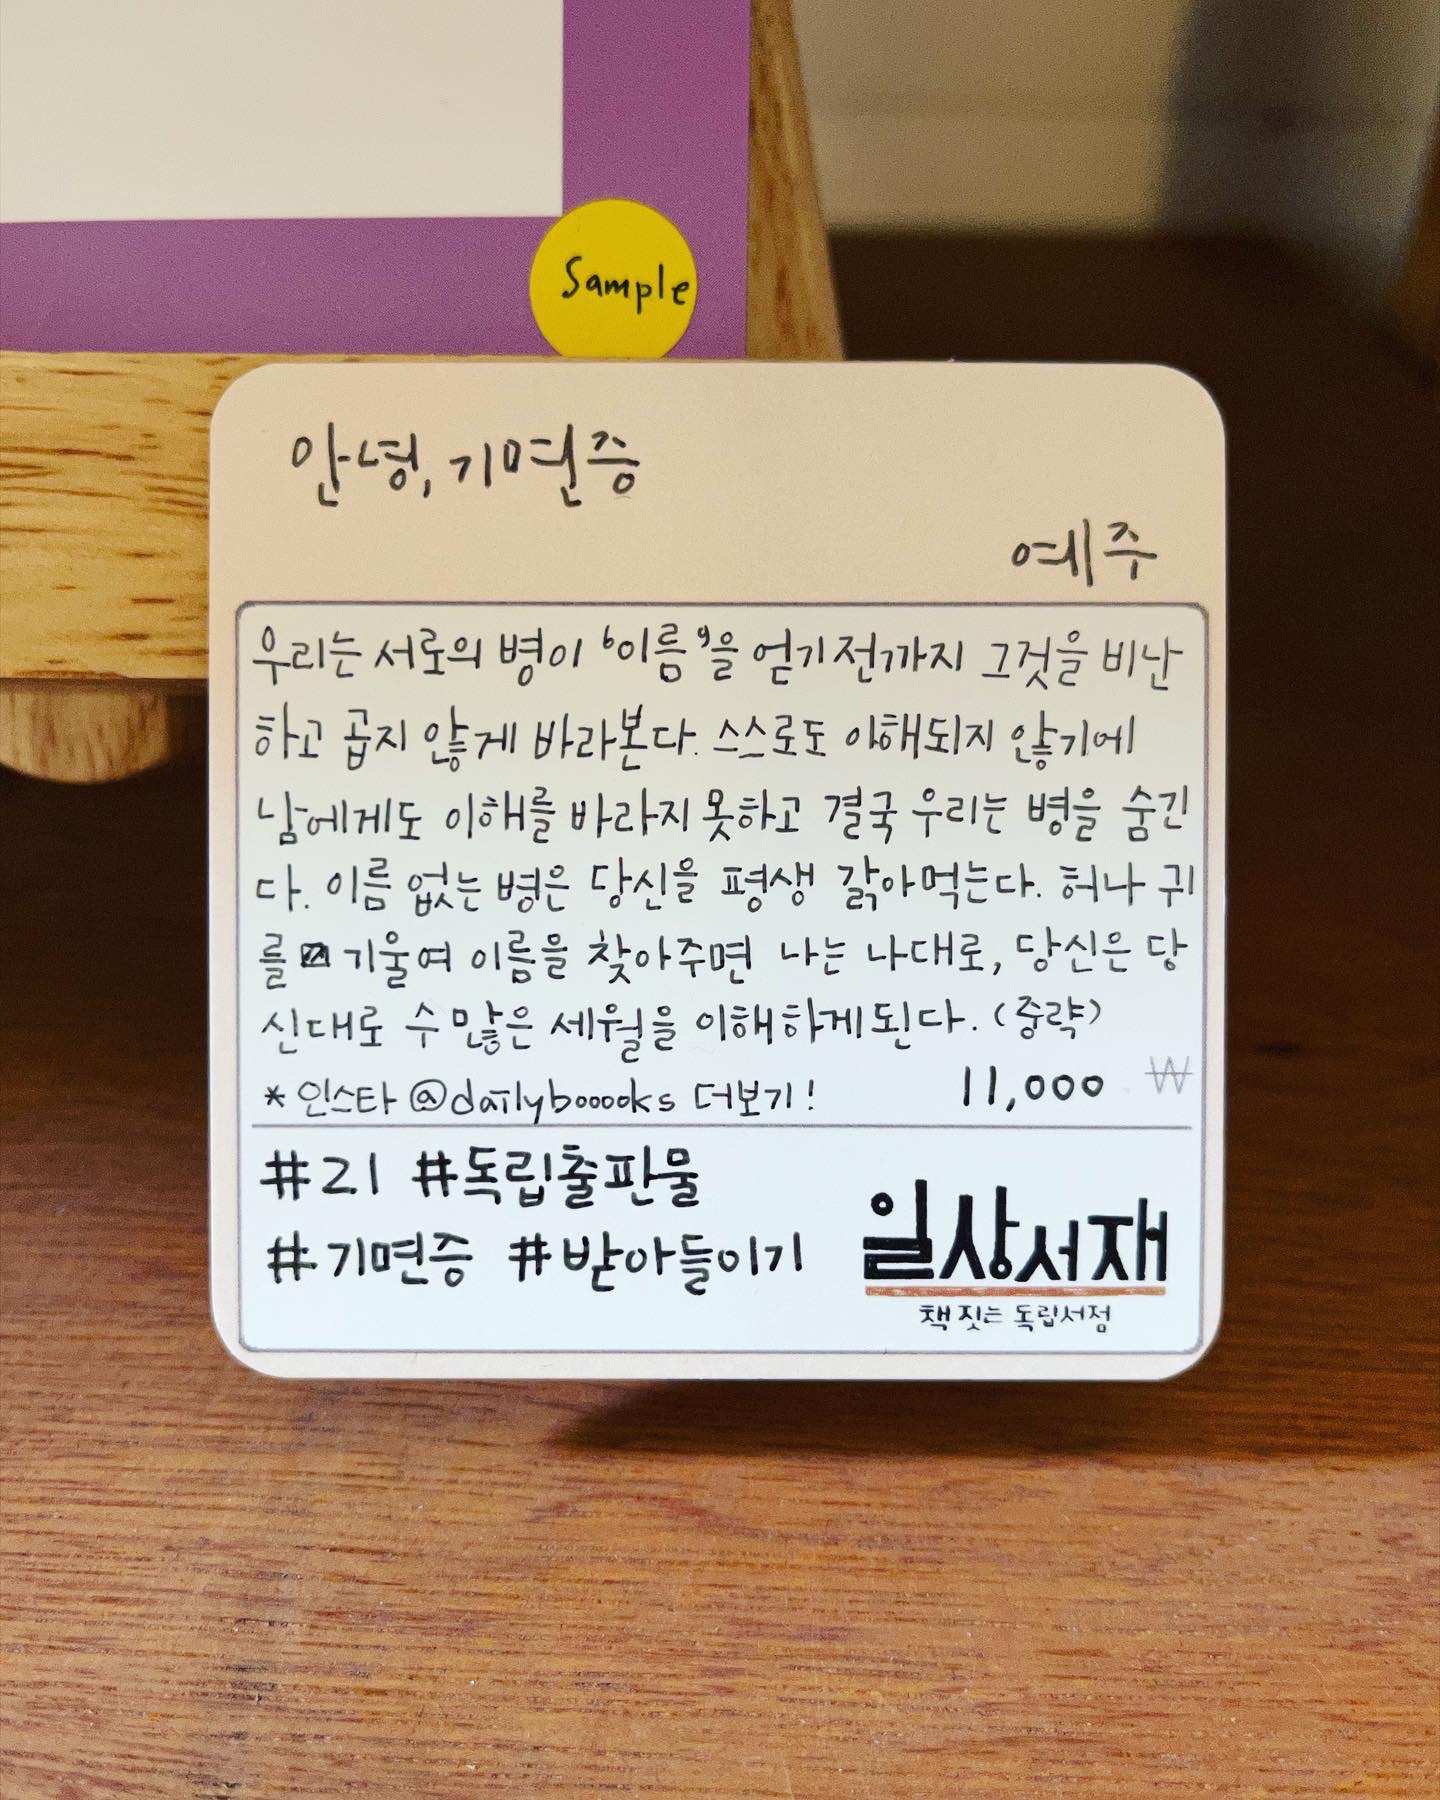 Sample
안녕, 기면증
예주
우리는 서로의 병이 '이름'을 얻기 전까지 그것을 비난
하고 곱지 않게 바라본다. 스스로도 이해되지 않기에
남에게도 이해를 바라지 못하고 결국 우리는 병을 숨긴
다. 이름 없는 병은 당신을 평생 갉아먹는다. 허나 귀
를 기울여 이름을 찾아주면 나는 나대로, 당신은 당
신대로 수 많은 세월을 이해하게 된다. (중략)
* 인스타 @dailybooooks 더보기! 11,000 ₩
#21 #독립출판물
#기면증 #받아들이기
일상서재
책 짓는 독립서점